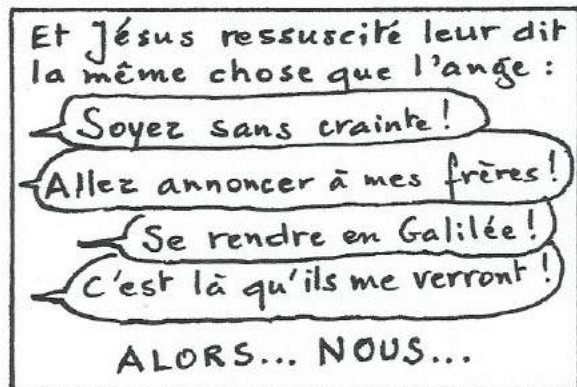 Et Jésus ressuscité leur dit
la même chose que l'ange :
Soyez sans crainte !
Allez annoncer à mes frères !
Se rendre en Galilée !
C'est là qu'ils me verront !
ALORS... NOUS...